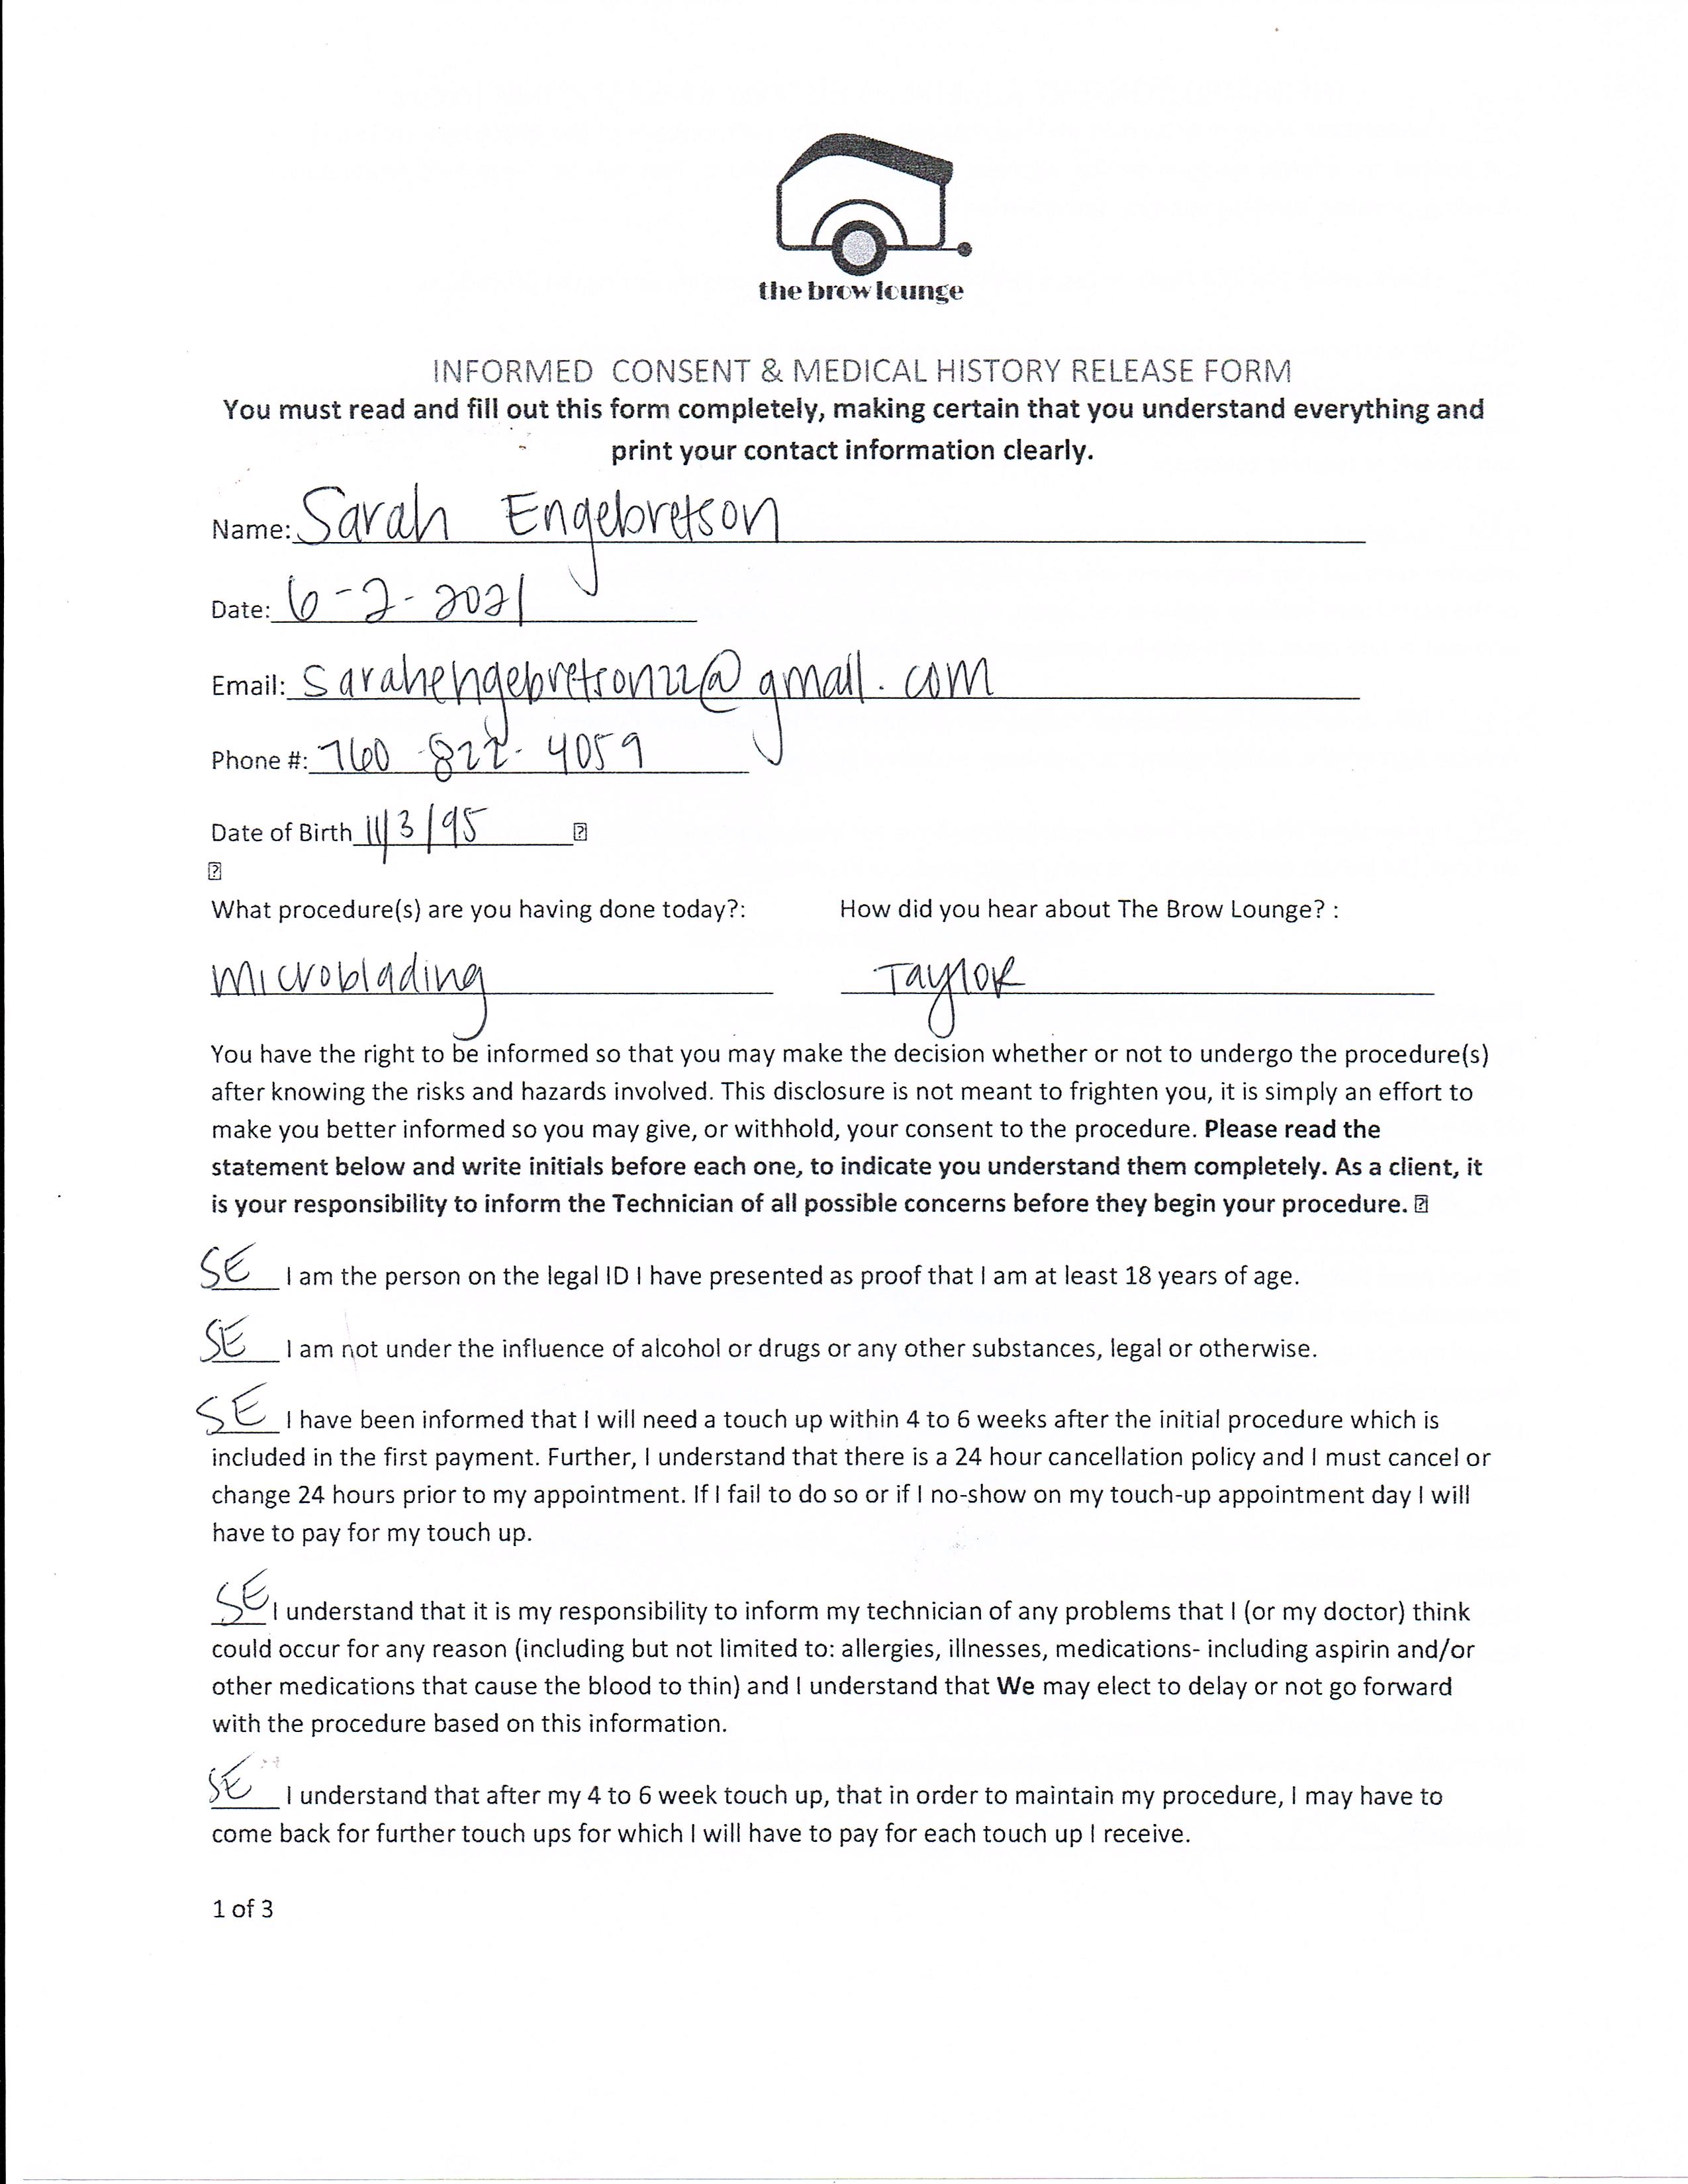 the brow lounge
INFORMED CONSENT & MEDICAL HISTORY RELEASE FORM
You must read and fill out this form completely, making certain that you understand everything and
print your contact information clearly.
Name: Sarah Engebretson
Date: 6-2-2021
Email: sarahengebretson22@gmail.com
Phone #: 760-822-4059
Date of Birth 11/3/95
What procedure(s) are you having done today?: How did you hear about The Brow Lounge? :
Microblading Taylor
You have the right to be informed so that you may make the decision whether or not to undergo the procedure(s)
after knowing the risks and hazards involved. This disclosure is not meant to frighten you, it is simply an effort to
make you better informed so you may give, or withhold, your consent to the procedure. Please read the
statement below and write initials before each one, to indicate you understand them completely. As a client, it
is your responsibility to inform the Technician of all possible concerns before they begin your procedure.
SE I am the person on the legal ID I have presented as proof that I am at least 18 years of age.
SE I am not under the influence of alcohol or drugs or any other substances, legal or otherwise.
SE I have been informed that I will need a touch up within 4 to 6 weeks after the initial procedure which is
included in the first payment. Further, I understand that there is a 24 hour cancellation policy and I must cancel or
change 24 hours prior to my appointment. If I fail to do so or if I no-show on my touch-up appointment day I will
have to pay for my touch up.
SE I understand that it is my responsibility to inform my technician of any problems that I (or my doctor) think
could occur for any reason (including but not limited to: allergies, illnesses, medications- including aspirin and/or
other medications that cause the blood to thin) and I understand that We may elect to delay or not go forward
with the procedure based on this information.
SE I understand that after my 4 to 6 week touch up, that in order to maintain my procedure, I may have to
come back for further touch ups for which I will have to pay for each touch up I receive.
1 of 3